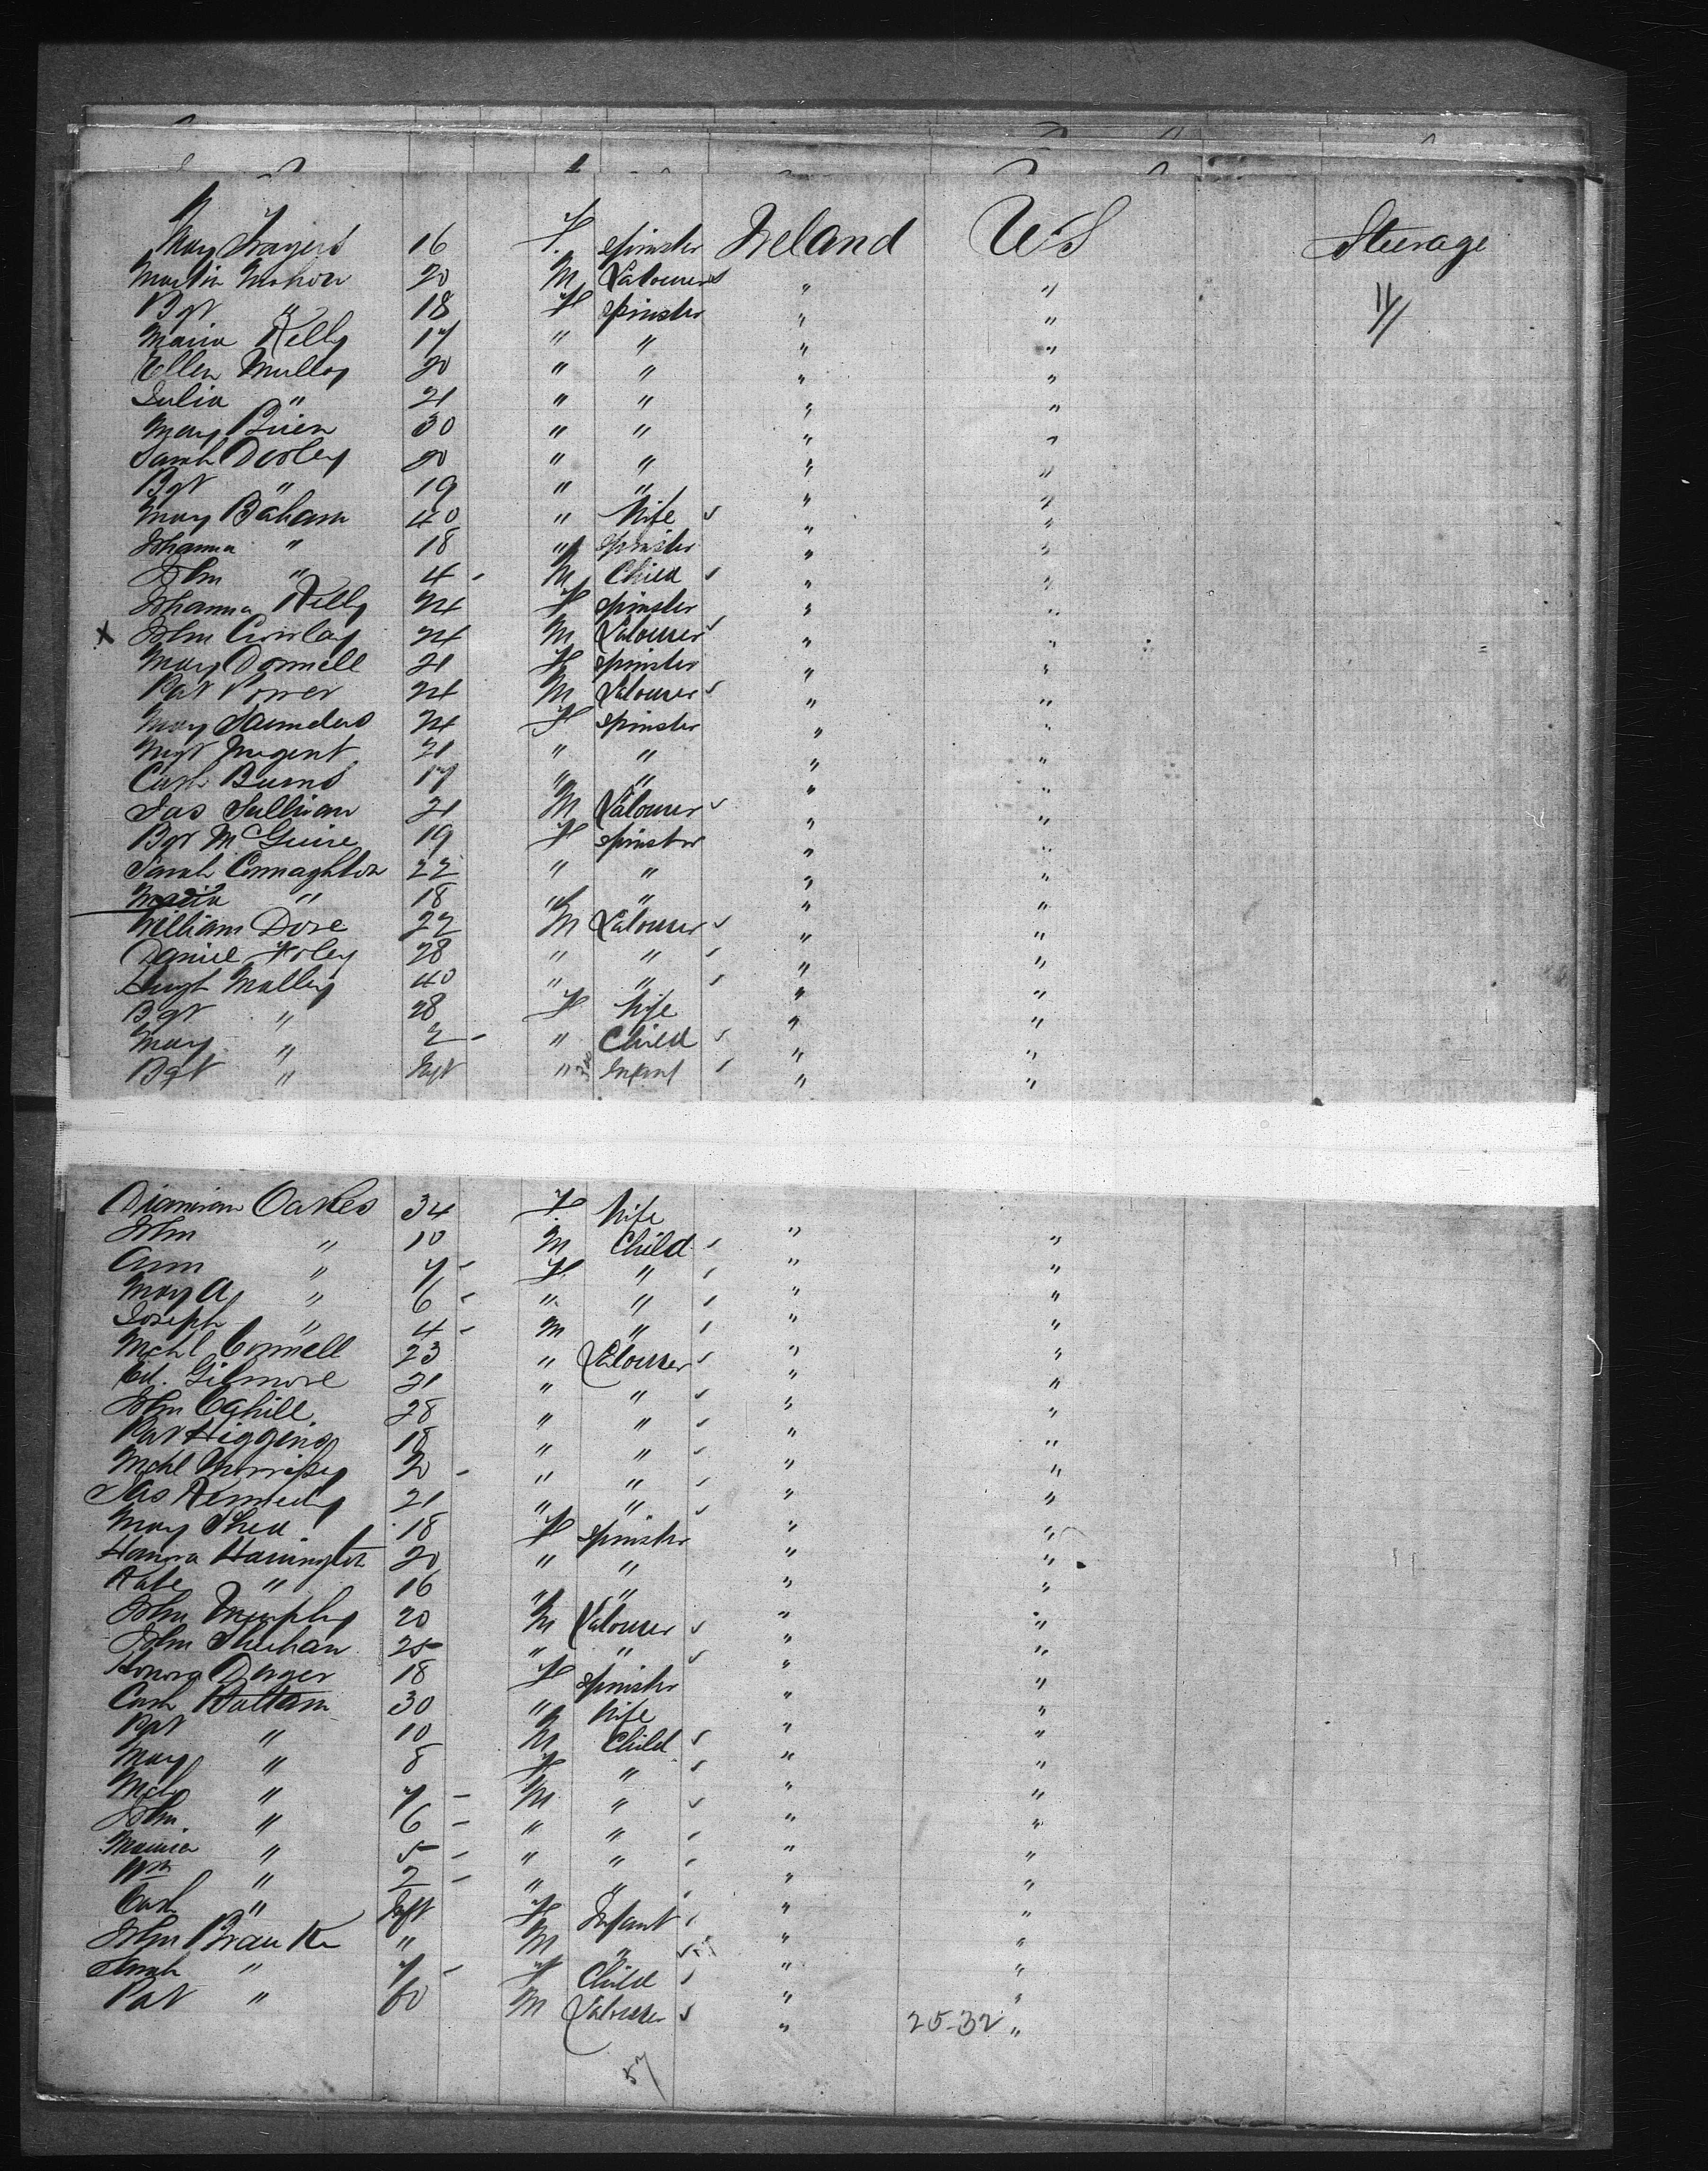 Mary Frayers 16 F. Spinster Ireland US Steerage
Martin Mahon 20 M Labourer " "
Bgt " 18 F Spinster " "
Maria Kelly 17 " " " "
Ellen Mulloy 20 " " " "
Julia " 21 " " " "
Mary Brien 30 " " " "
Sarah Dorley 20 " " " "
Bgt " 19 " " " "
Mary Baham 40 " Wife " "
Johanna " 18 " Spinster " "
John " 4 - M Child " "
Johanna Kelly 24 F Spinster " "
X John Crowley 24 M Labourer " "
Mary Donnell 21 F Spinster " "
Pat Power 24 M Labourer " "
Mary Saunders 24 F Spinster " "
Mgt Nugent 21 " " " "
Cath Burns 17 " " " "
Jas Sullivan 21 M Labourer " "
Bgt McGuire 19 F Spinster " "
Sarah Connaghton 22 " " " "
Maria " 18 " " " "
William Dore 22 M Labourer " "
Daniel Foley 28 " " " "
Hugh Malley 40 " " " "
Bgt " 28 F Wife " "
Mary " 2 - " Child " "
Bgt " Inft " Infant " "
Oakes 34 F. Wife " "
John " 10 M Child " "
Ann " 7 - F " " "
Mary A " 6 - " " " "
Joseph " 4 - M " " "
Mchl Connell 23 " Labourer " "
Ed. Gilmore 21 " " " "
John Cahill 28 " " " "
Pat Higgins 18 " " " "
Mchl Morrissy 20 - " " " "
Jas Kennedy 21 " " " "
Mary Shea 18 F Spinster " "
Hanora Harrington 20 " " " "
Kate " 16 " " " "
John Murphy 20 M Labourer " "
John Sheehan 25 " " " "
Honora Dwyer 18 F Spinster " "
Cath Hallam 30 " Wife " "
Pat " 10 M Child " "
Mary " 8 F " " "
Mchl " 7 - M " " "
John " 6 - " " " "
Maurice " 5 - " " " "
Wm " 2 - " " " "
Cath " Inft F Infant " "
John " M " " "
Sarah " 7 - F Child " "
Pat " 60 M Labourer " 25-32 "
57